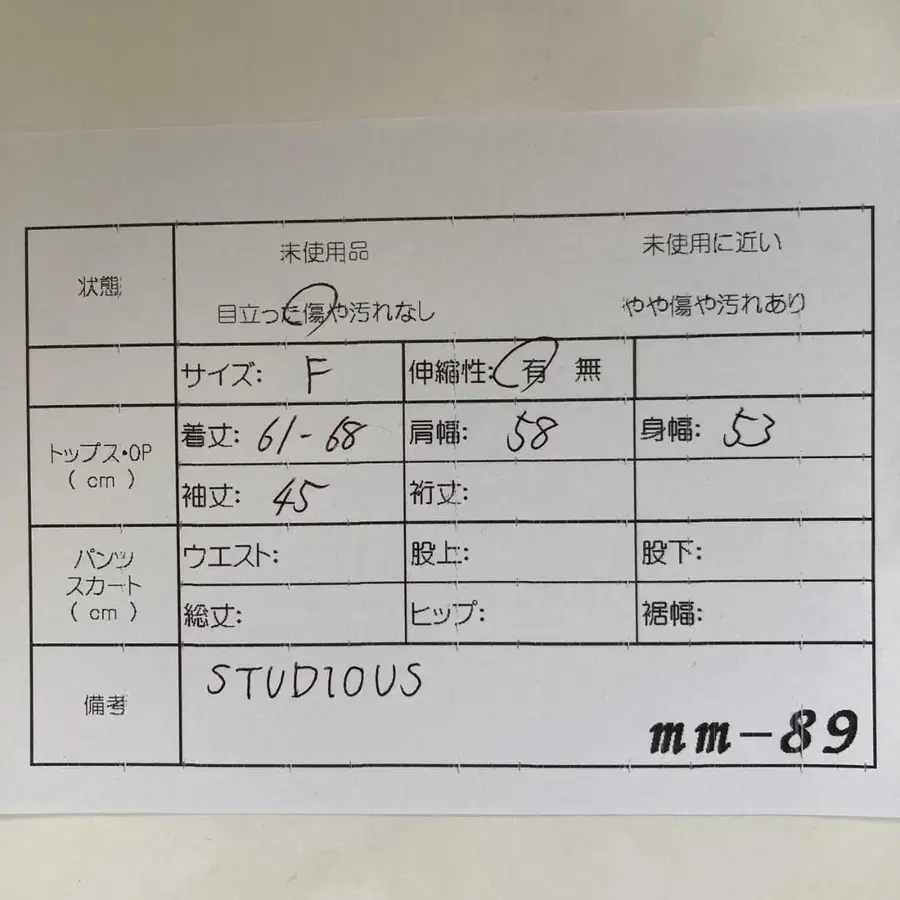 状態
未使用品 未使用に近い
目立った傷や汚れなし やや傷や汚れあり
サイズ: F 伸縮性: 有 無
トップス・OP
( cm )
着丈: 61-68 肩幅: 58 身幅: 53
袖丈: 45 裄丈:
パンツ
スカート
( cm )
ウエスト: 股上: 股下:
総丈: ヒップ: 裾幅:
備考
STUDIOUS
mm-89